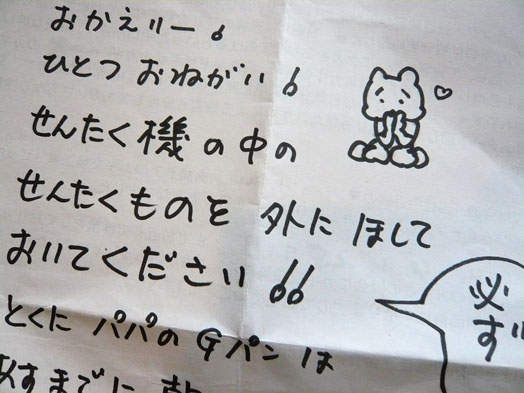 おかえりー!
ひとつ おねがい!
せんたく機の中の
せんたくものを 外に ほして
おいてください!!
とくに パパの Gパン は
までに
必
ず